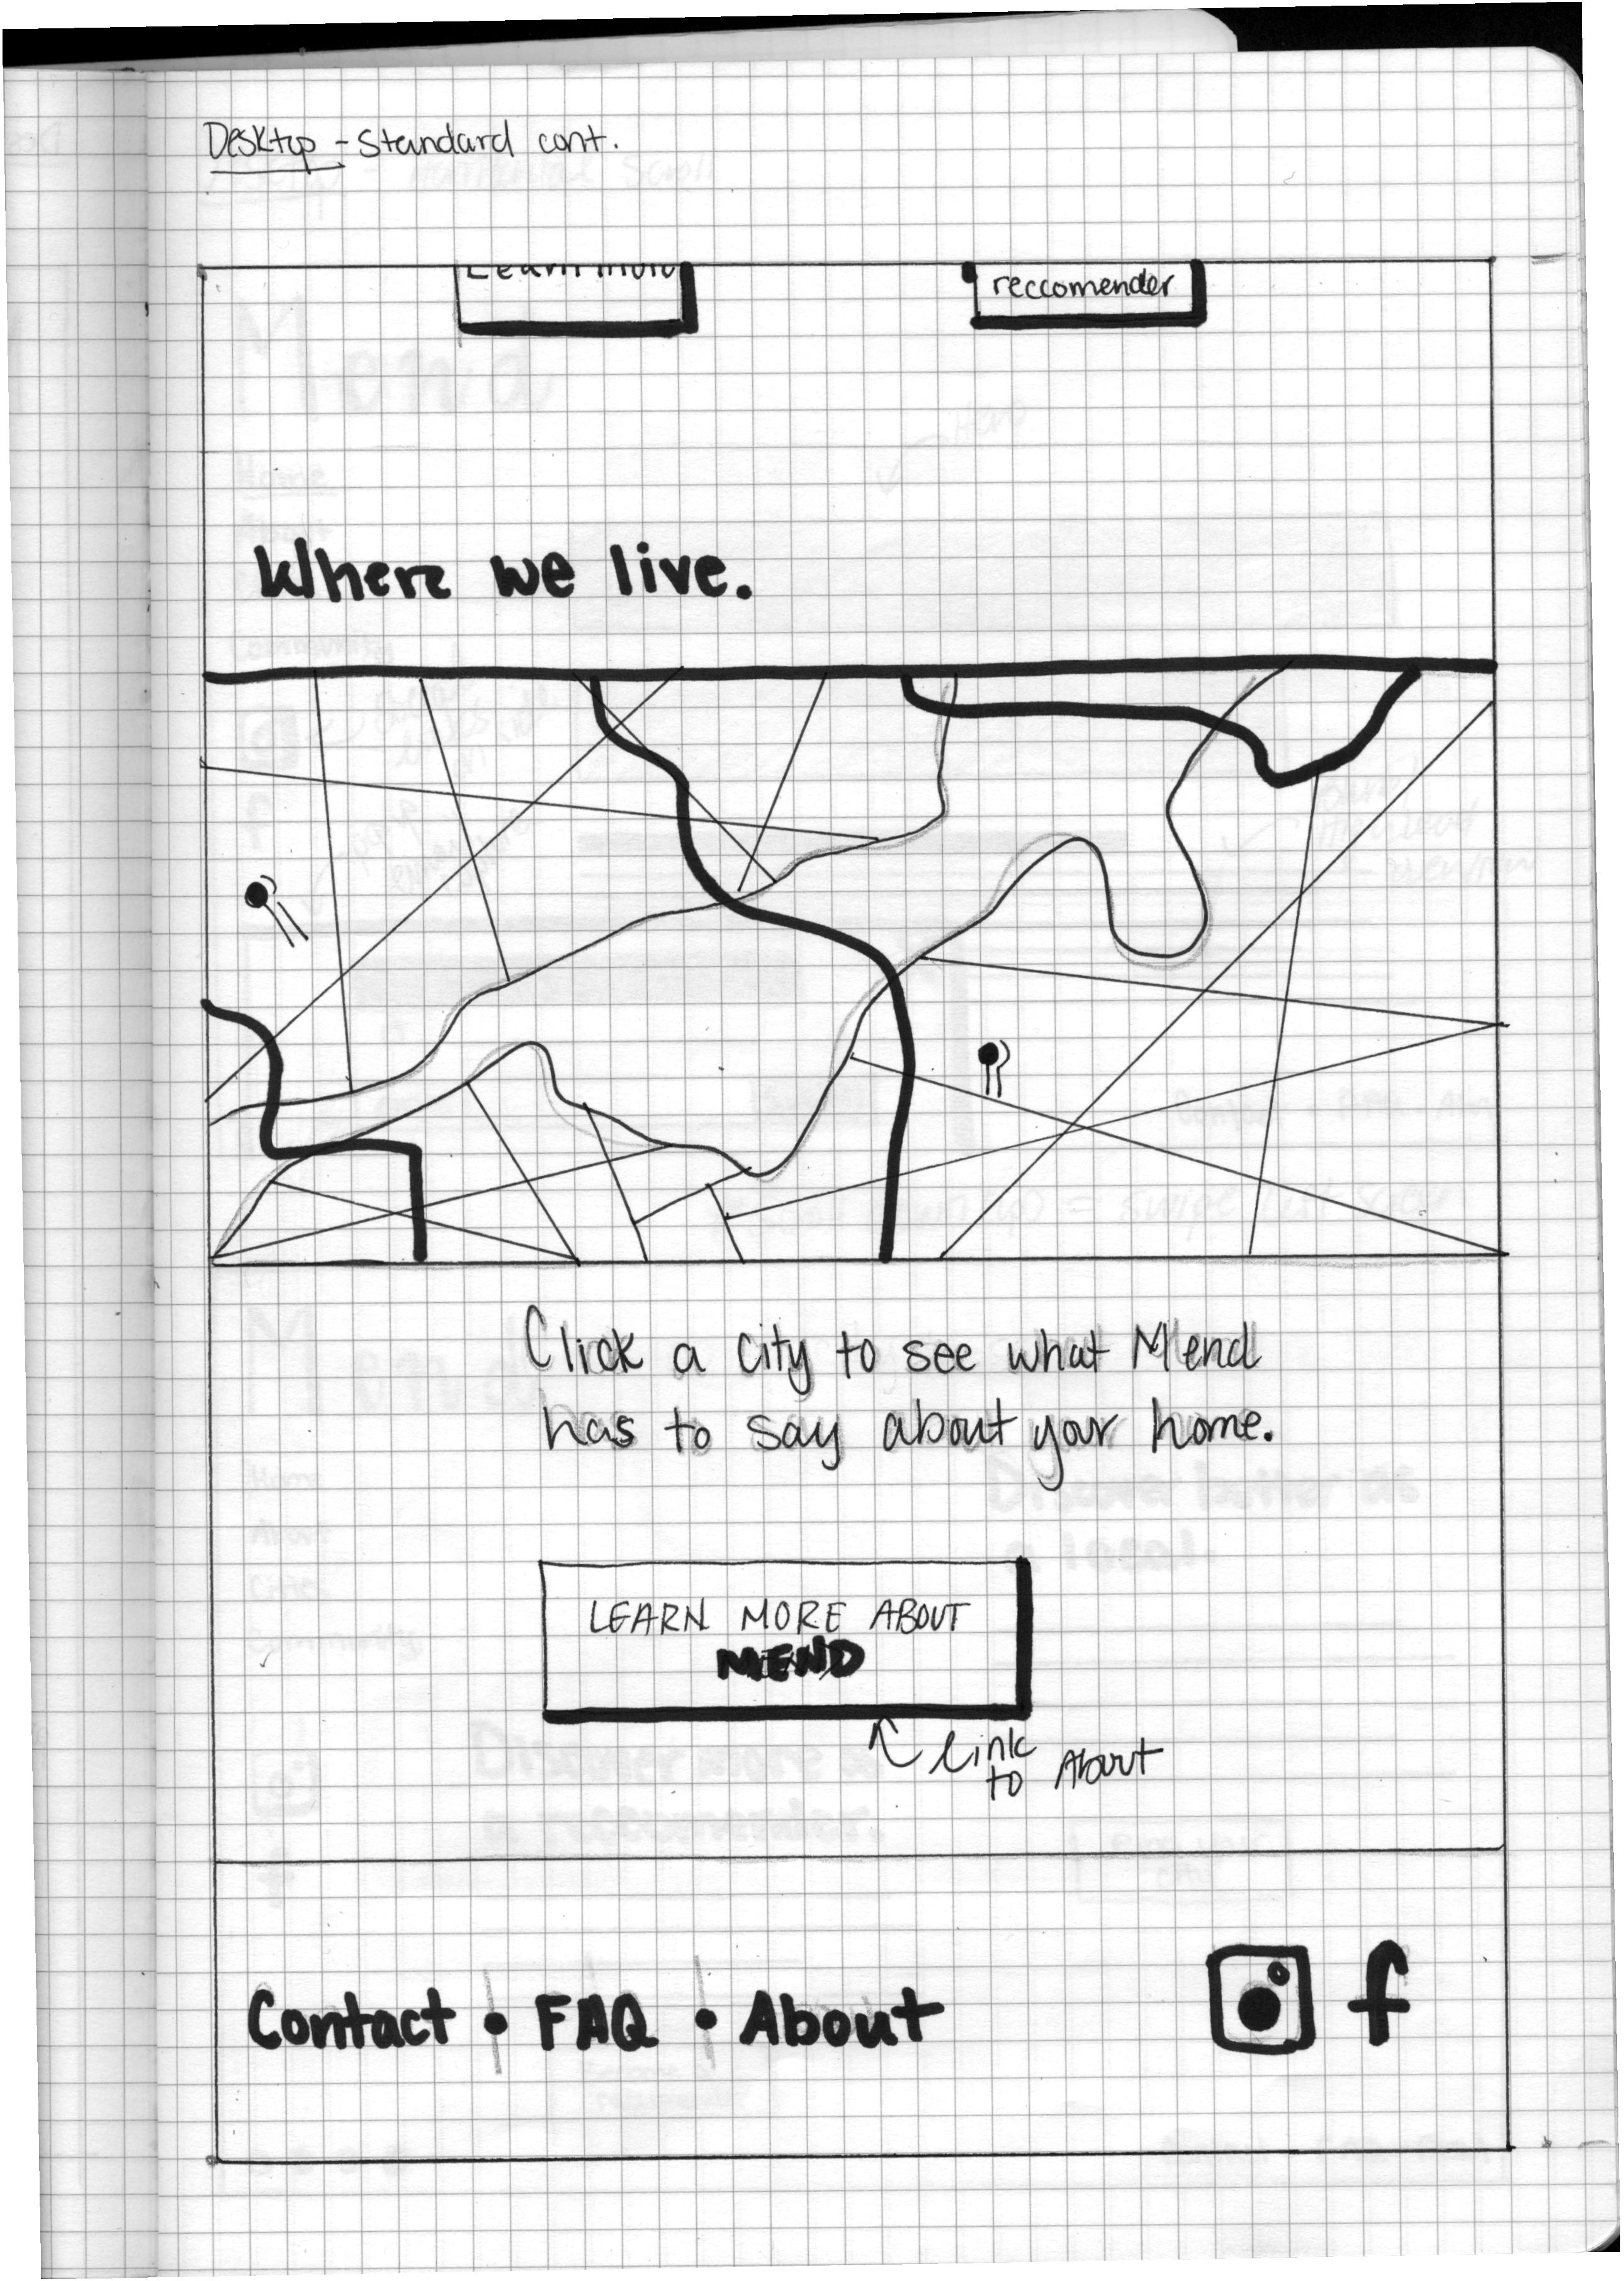 Desktop - Standard cont.
Learn more
reccomender
Where we live.
Click a city to see what Mend
has to say about your home.
LEARN MORE ABOUT
MEND
link
to About
Contact • FAQ • About
f